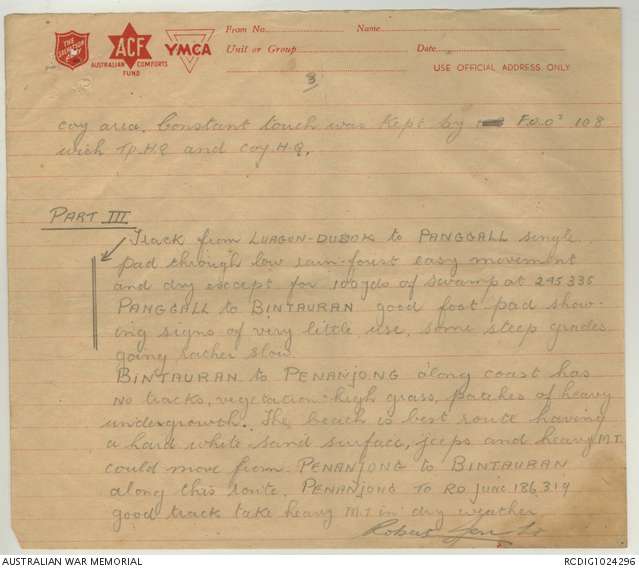 THE SALVATION ARMY
ACF
AUSTRALIAN COMFORTS FUND
YMCA
From No. Name
Unit or Group Date
USE OFFICIAL ADDRESS ONLY
3
coy area. Constant touch was kept by F.O.O's 108
with Tp.H.Q and coy H.Q.
PART III
Track from LUAGON-DUBOK to PANGGALL single
pad through low rain-forist easy movement
and dry except for 100yds of swamp at 245335
PANGGALL to BINTAURAN good foot pad show-
ing signs of very little use, some steep grades
going rather slow.
BINTAURAN to PENANJONG along coast has
no tracks, vegetation-high grass, patches of heavy
undergrowth. The beach is best route having
a hard white sand surface, jeeps and heavy M.T.
could move from PENANJONG to BINTAURAN
along this route. PENANJONG TO RD junc 186319
good track take heavy M.T in dry weather
Robert
AUSTRALIAN WAR MEMORIAL
RCDIG1024296